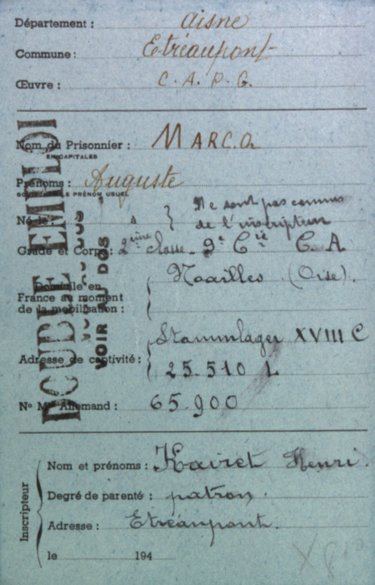 Département : Aisne
Commune : Etréaupont
Œuvre : C. A. P. G.
Nom du Prisonnier : MARCQ
EN CAPITALES
Prénoms : Auguste
PRÉNOM USUEL
Né le à } Ne sont pas connus
de l'inscripteur
Grade et Corps : 2ème classe 9e Cie C. A
Domicile en
France au moment
de la mobilisation : Noailles (Oise).
Adresse de captivité : Stammlager XVIII C
25.510 L
No Mle Allemand : 65.900
DOUBLE EMPLOI
VOIR AU DOS
Inscripteur
Nom et prénoms : Kairet Henri
Degré de parenté : patron.
Adresse : Etréaupont.
le 194